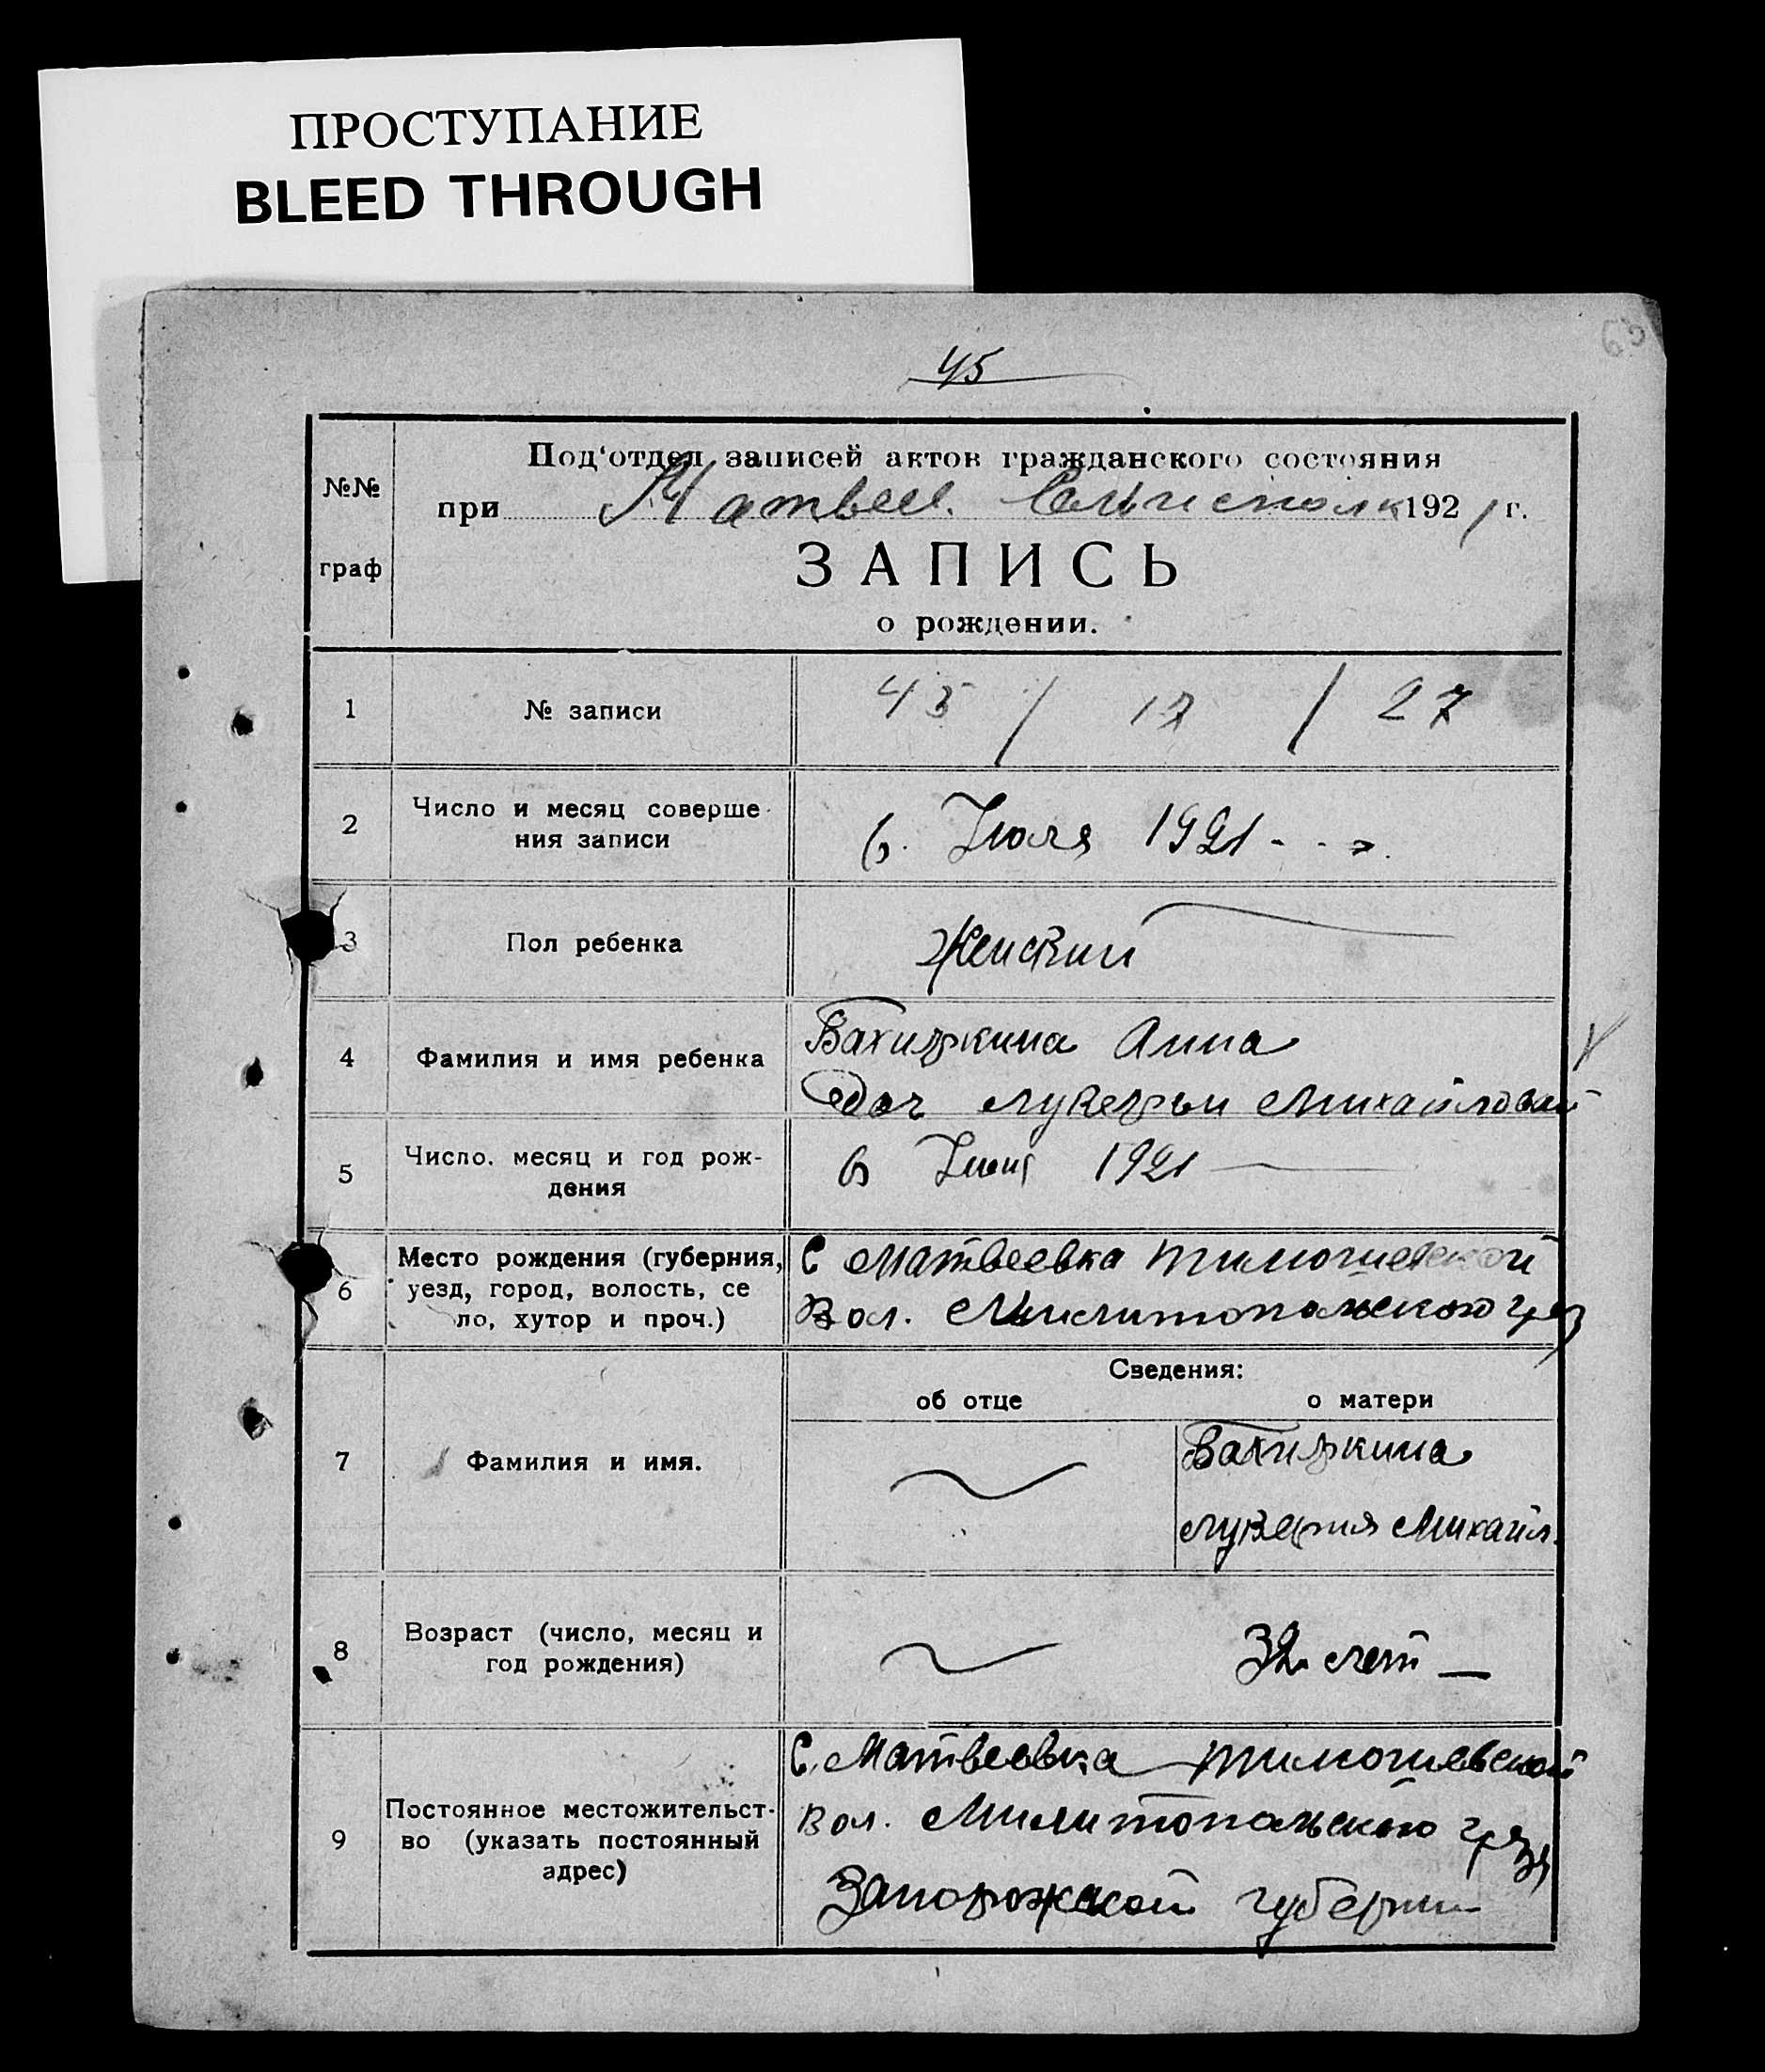 ПРОСТУПАНИЕ
BLEED THROUGH
63
45
№№
граф
Под‘отдел записей актов гражданского состояния
при Матвеев. Сельисполк 1921 г.
ЗАПИСЬ
о рождении.
1
№ записи
45 / 17 / 27
2
Число и месяц соверше-
ния записи
6. Июля 1921
3
Пол ребенка
Женский
4
Фамилия и имя ребенка
Вахиркина Анна
доч Лукерьи Михайловной
5
Число, месяц и год рож-
дения
6 Июня 1921
6
Место рождения (губерния,
уезд, город, волость, се
ло, хутор и проч.)
С Матвеевка Тимошевской
Вол. Милитопольского
Сведения:
об отце
о матери
7
Фамилия и имя.
Вахиркина
Лукерия Михайл.
8
Возраст (число, месяц и
год рождения)
32 лет
9
Постоянное местожительст-
во (указать постоянный
адрес)
С. Матвеевка Тимошевской
Вол. Милитопольского
Запорожской губернии